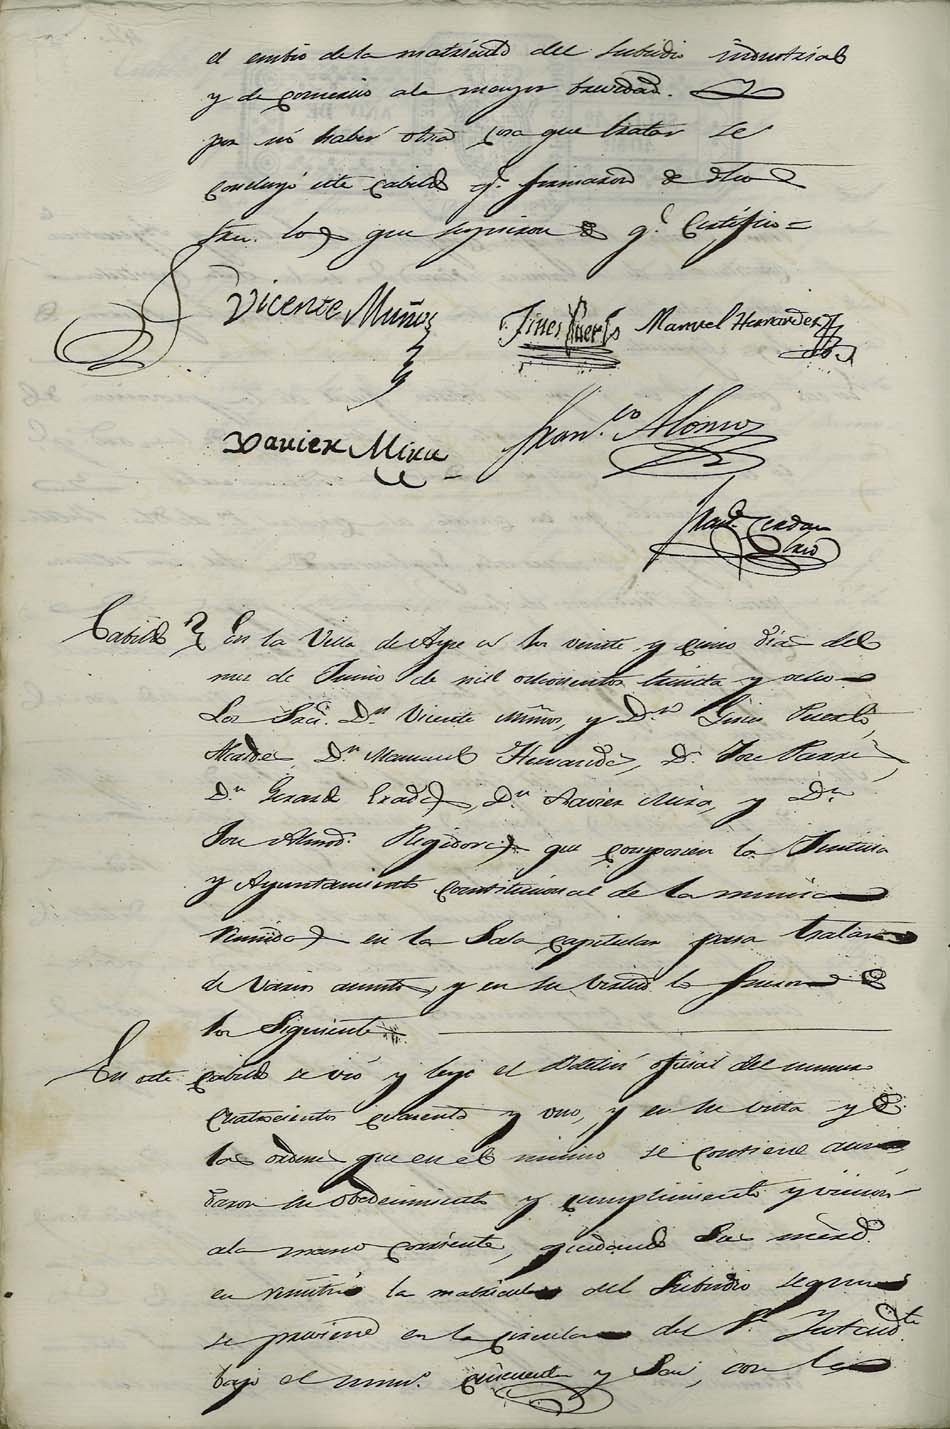 el embio de la matricula del subsidio industrial
y de comercio a la mayor brevedad. Y
por no haber otra cosa que tratar se
concluyó este cabildo q.e firmaron de dhos
Sres. los que supieron de q.e Certifico =
Vicente Muños
Jines Puerto
Manuel Hernandez
Xavier Mira
Fran.co Alonso
Cabildo En la Villa de Aspe a los veinte y cinco dias del
mes de Junio de mil ochocientos treinta y ocho
Los Srs. Dn Vicente Muños, y Dn Gines Puerto,
Alcaldes, Dn Manuel Hernandes, Dn Jose
Dn Dn Xavier Mira, y Dn
Jose Almod. Regidores que componen la Justicia
y Ayuntamiento constitucional de la misma
reunidos en la Sala capitular para tratar
de varios asuntos, y en su virtud lo hisieron de
los Siguientes
En este cabildo se vió y leyó el Boletin oficial del numero
cuatrocientos cuarenta y uno, y en su vista y de
las ordenes que en el mismo se contiene acor
daron su obedecimiento y cumplimiento y union
a la mano corriente, quedando Sus merd.
en remitir la matricula del Subsidio segun
se previene en la circular del Sr. Intend.te
bajo el num.o cincuenta y Seis, con la